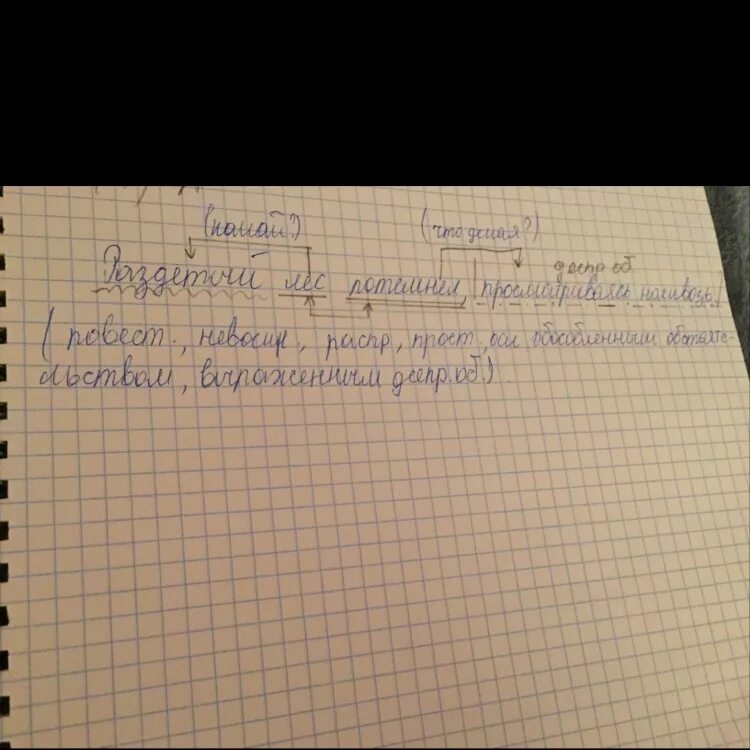 (какой?) (что делая?)
деепр.об.
Раздетый лес потемнел, |просматриваясь насквозь.|
(повест., невоскл., распр., прост., осл. обособленным обстояте-
льством, выраженным деепр.об.)